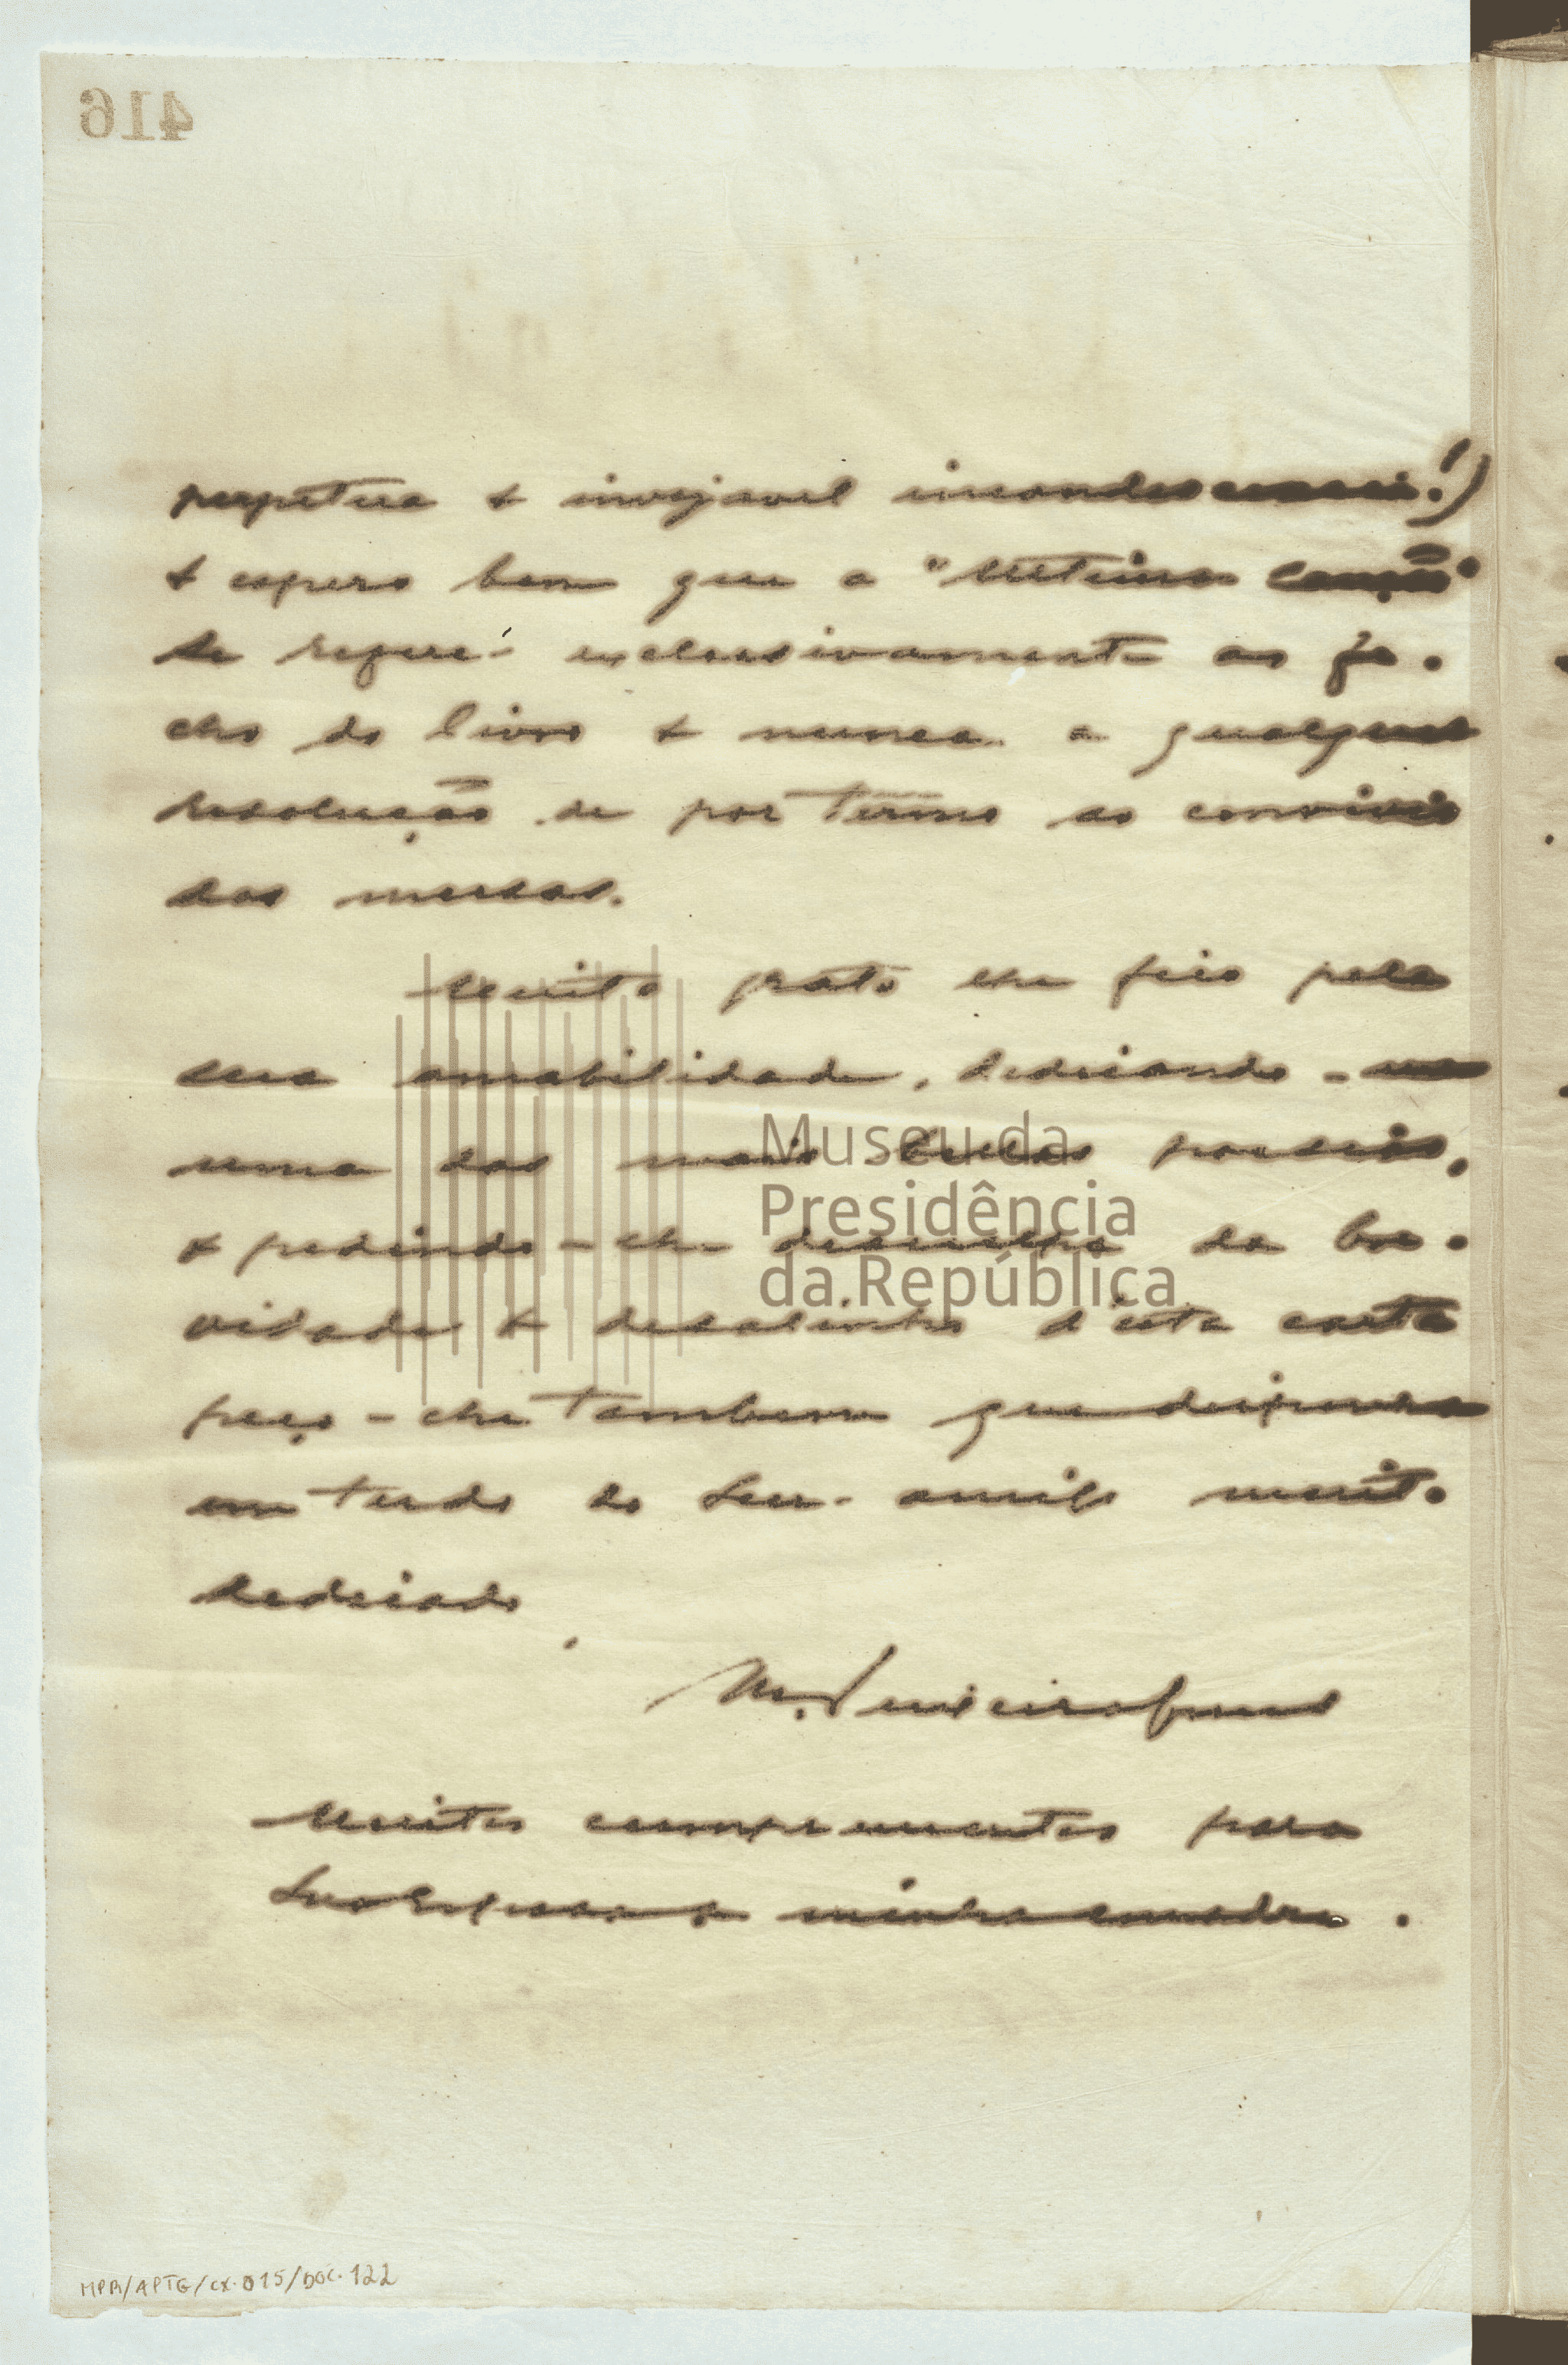 416
perpetua e invejavel incandescencia!)
e espero bem que a "Ultima Canção"
se refere exclusivamente ao fe-
cho do livro e nunca a qualquer
resolução de por termo ao convivio
das musas.
Muito grato lhe fico pela
sua amabilidade, dedicando-me
uma das mais bellas poesias,
e pedindo-lhe desculpa da bre-
vidade e desalinho d'esta carta
peço-lhe tambem que disponha
em tudo do seu amigo muito
dedicado
M. Teixeira Gomes
Muitos cumprimentos para
minha
Museu da
Presidência
da República
MPR/APTG/CX.015/DOC.122